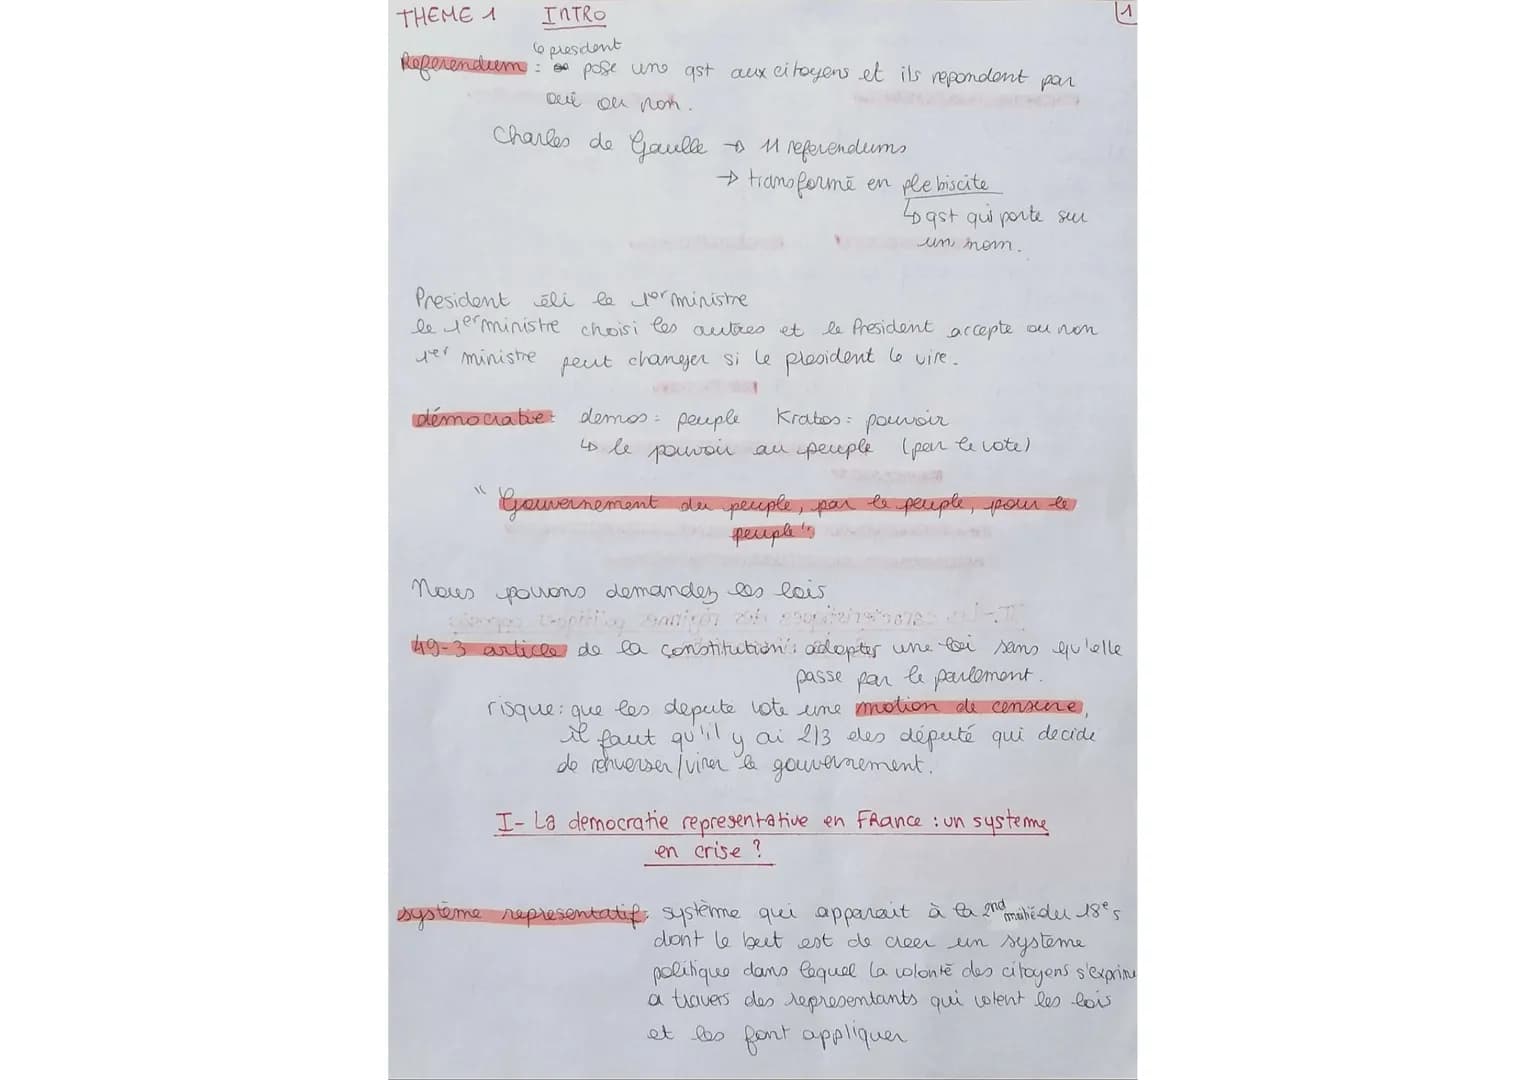 THEME 1 INTRO 1
le president
Referendum : pose une qst aux citoyens et ils repondent par
oui ou non.
Charles de Gaulle → 11 referendums
→ transformé en plebiscite
↳ qst qui porte sur
un nom.
President éli le 1er ministre
le 1er ministre choisi les autres et le President accepte ou non
1er ministre peut changer si le president le vire.
démocratie : demos = peuple Kratos = pouvoir
↳ le pouvoir au peuple (par le vote)
"Gouvernement du peuple, par le peuple, pour le
peuple"
Nous pouvons demandez les lois
49-3 article de la constitution : adopter une loi sans qu'elle
passe par le parlement.
risque : que les deputé vote une motion de censure,
il faut qu'il y ai 2/3 des député qui decide
de renverser/virer le gouvernement.
I- La democratie representative en FRance : un systeme
en crise ?
système representatif : système qui apparait à la 2nd moitié du 18e s
dont le but est de creer un système
politique dans lequel la volonté des citoyens s'exprime
a travers des representants qui votent les lois
et les font appliquer